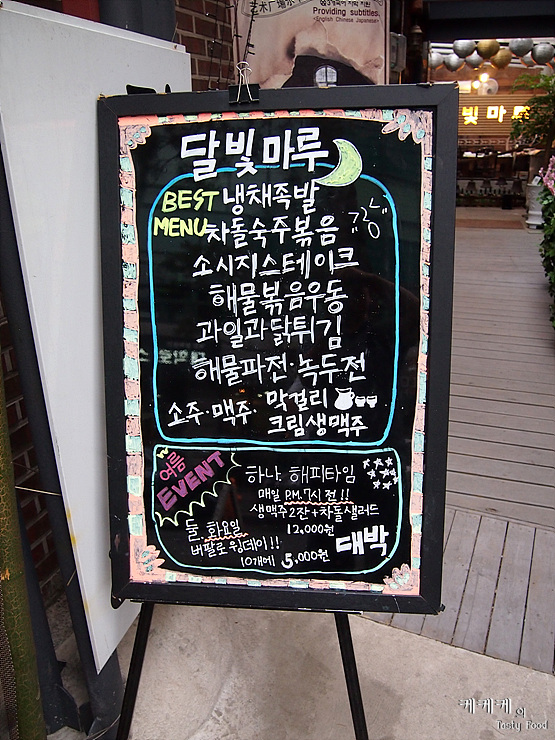 Providing subtitles.
-English Chinese Japanese-
빛 마 루
달빛마루
BEST 냉채족발
MENU 차돌숙주볶음
"강"
소시지스테이크
해물볶음우동
과일과 닭튀김
해물파전·녹두전
소주·맥주· 막걸리
크림생맥주
여름 EVENT
하나. 해피타임
매일 P.M. 7시 전!!
생맥주2잔+차돌샐러드
12,000원
둘. 화요일
버팔로 윙데이!!
10개에 5,000원
대박
케케케의
Tasty Food